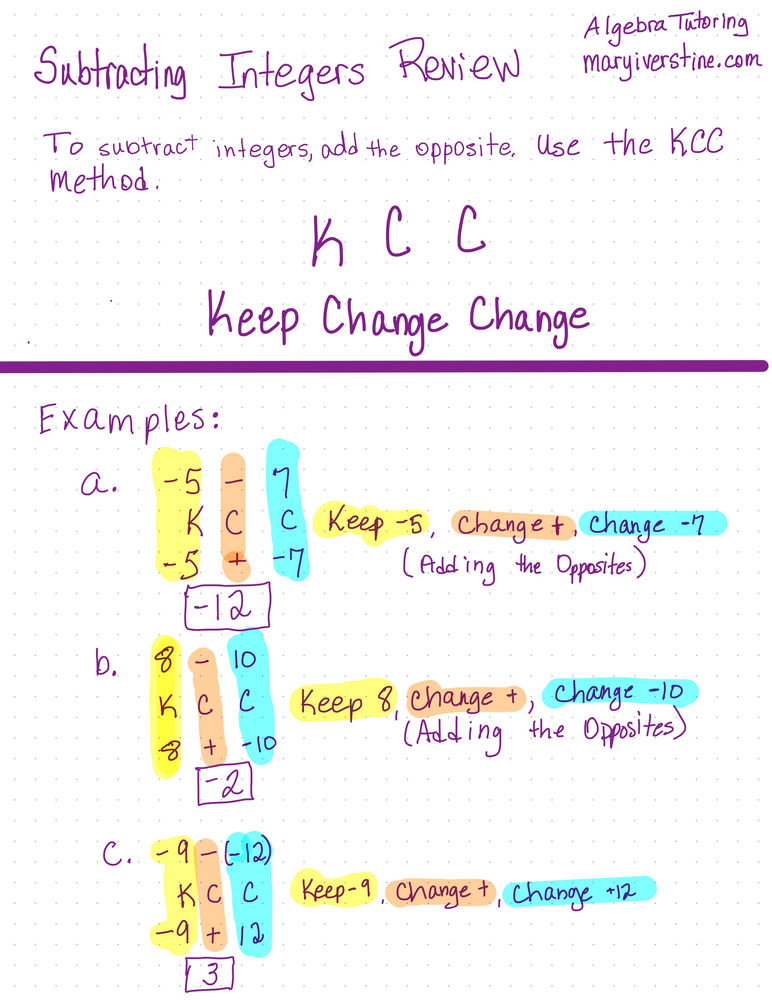 Algebra Tutoring
maryiverstine.com
Subtracting Integers Review
To subtract integers, add the opposite. Use the KCC
Method.
K C C
Keep Change Change
Examples:
a. -5 - 7
K C C Keep -5, Change +, Change -7
-5 + -7 (Adding the Opposites)
-12
b. 8 - 10
K C C Keep 8, Change +, Change -10
8 + -10 (Adding the Opposites)
-2
c. -9 - (-12)
K C C Keep -9, Change +, Change +12
-9 + 12
3